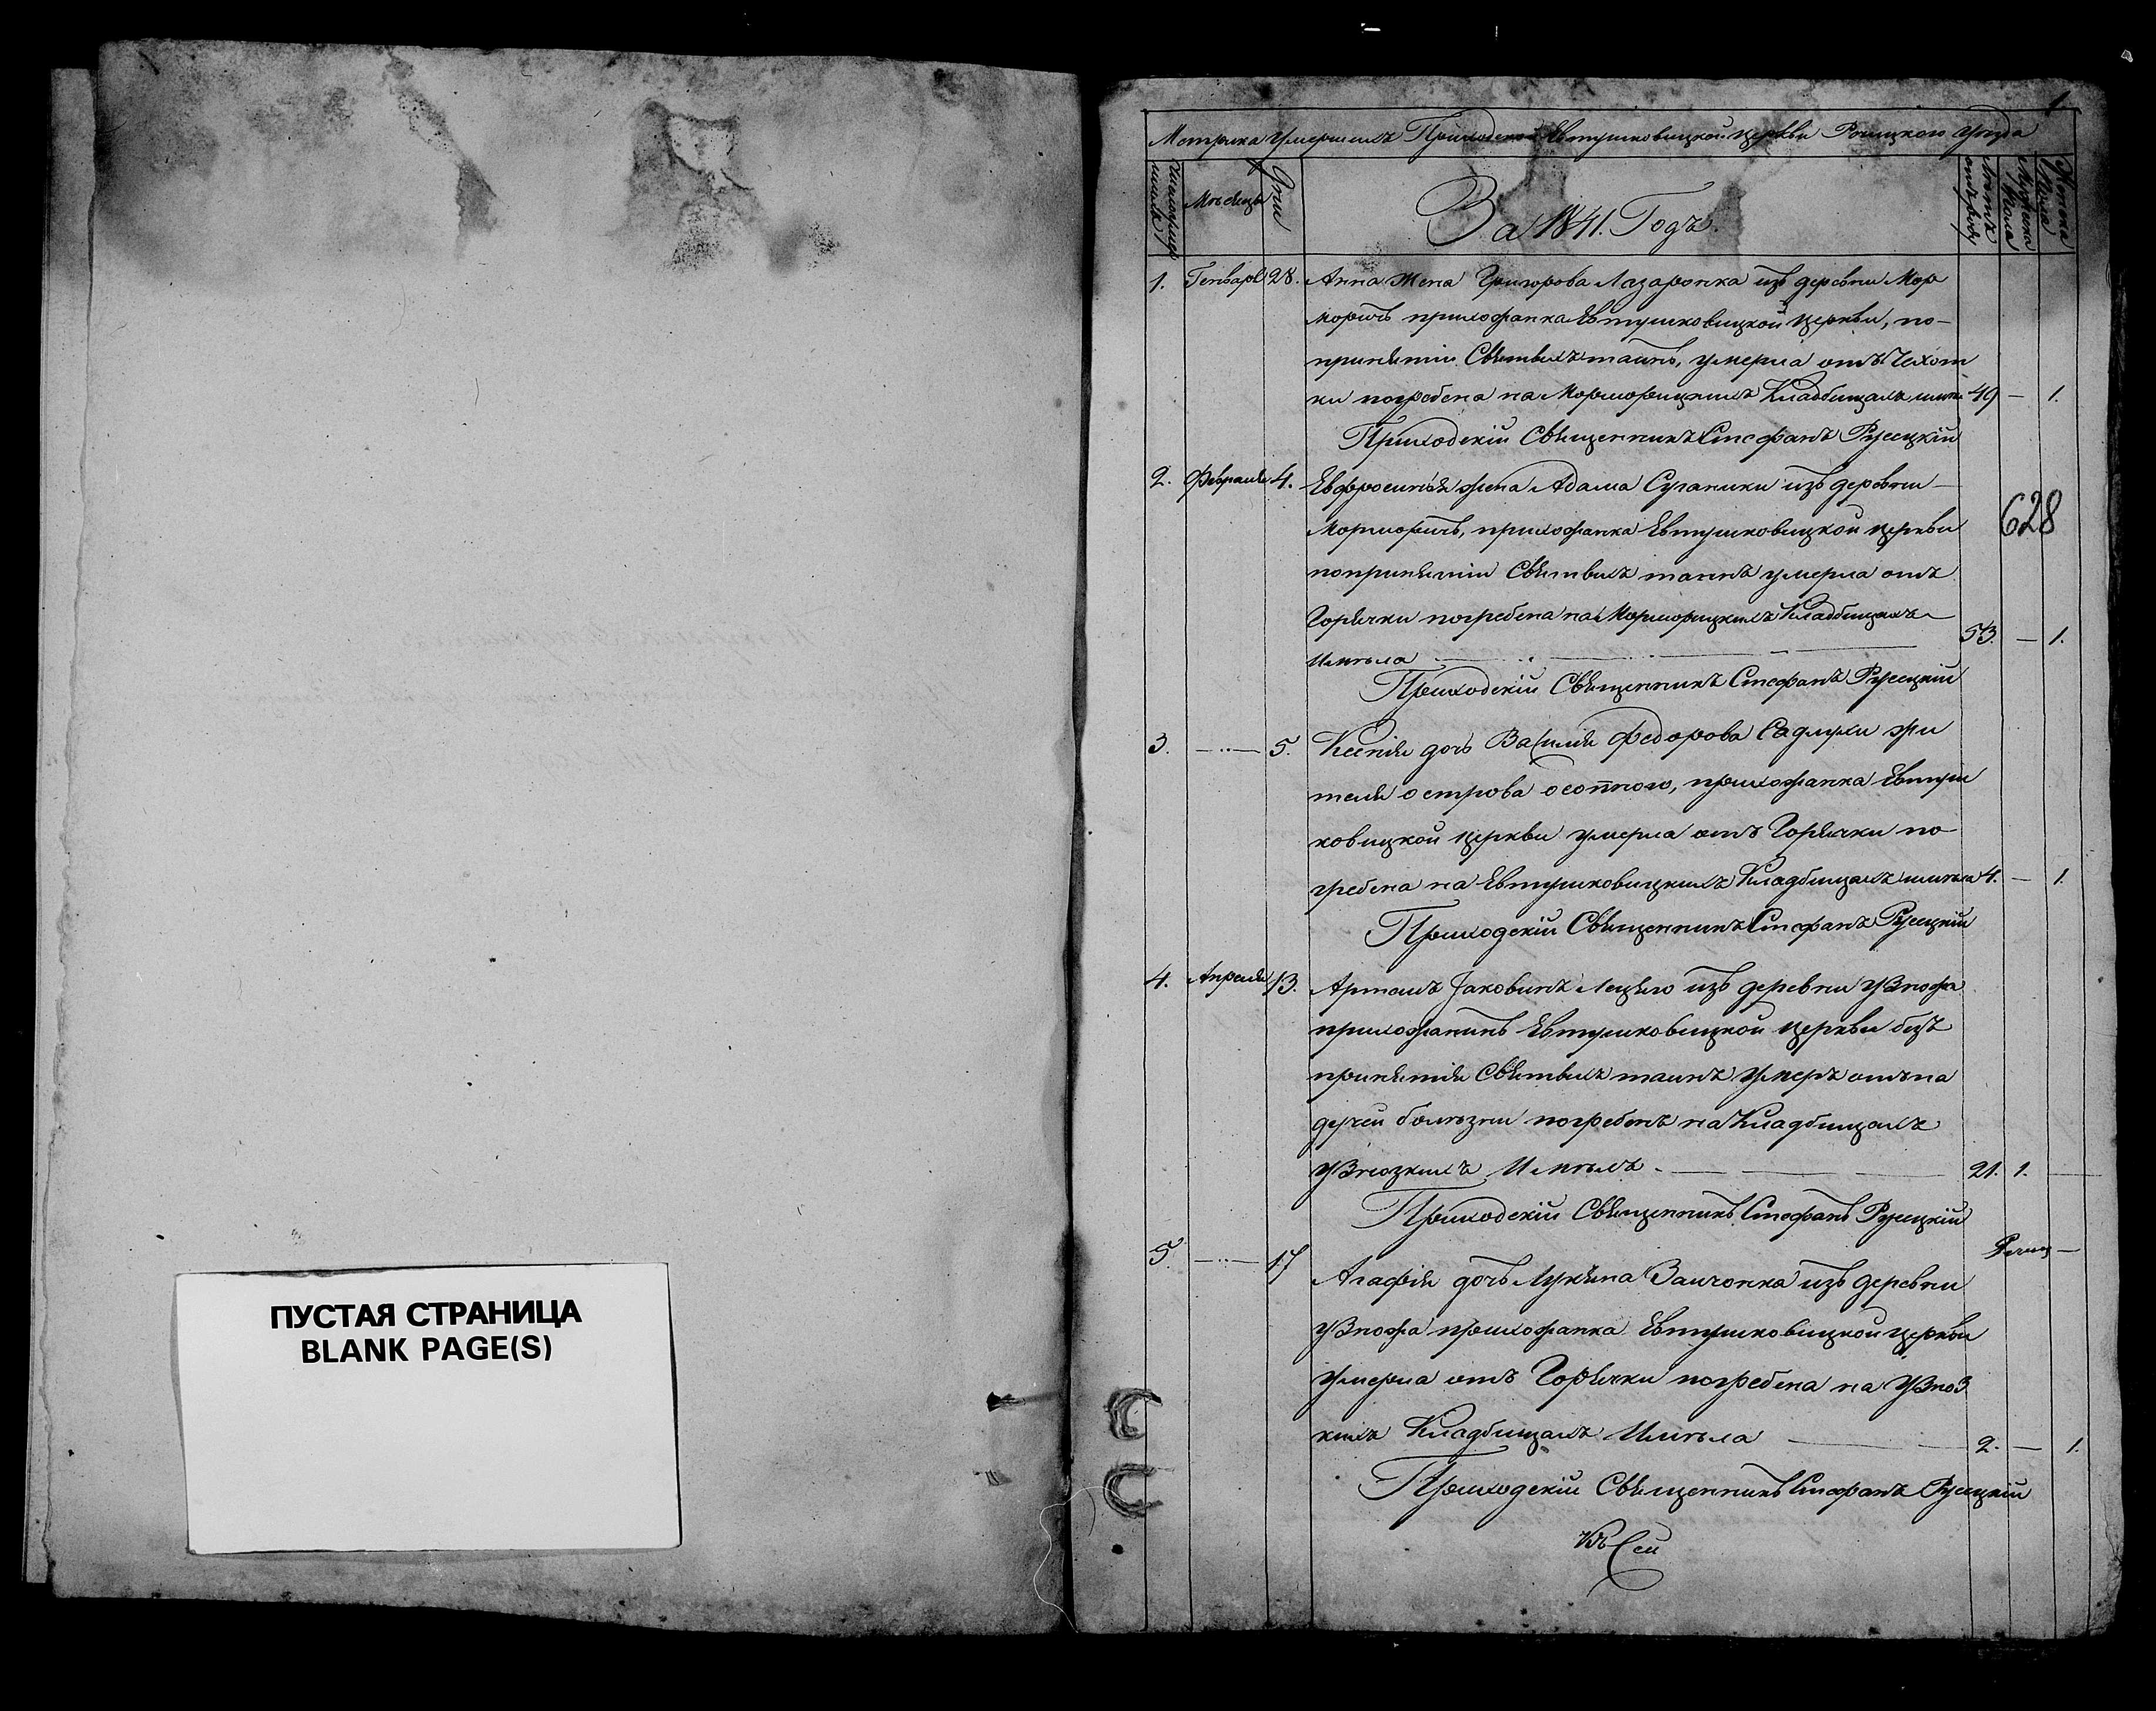 ПУСТАЯ СТРАНИЦА
BLANK PAGE(S)
1
Метрика Умершихъ Приходской Евтушковицкой церкви Речицкого уезда
Мѣсяцъ
Дни
За 1841. Годъ.
отъ роду
Мужеска Пола
Женска Пола
1. Генваря 28. Анна жена Григорова Лазаронка изъ деревни Мор
моричъ прихожанка Евтушковицкой церкви, по-
принятiи Святыхъ таинъ, умерла отъ Чехот
ки погребена на Морморицкихъ Кладбищахъ имѣ 49 — 1.
Приходскiй Священникъ Стефанъ Русецкiй
2. Февраля 4. Евфросинья жена Адама Суганики изъ деревни
Морморичъ, прихожанка Евтушковицкой церкви
628
попринятiи Святыхъ таинъ умерла отъ
Горячки погребена на Морморицкихъ Кладбищахъ
Имѣла 53. — 1.
Приходскiй Священникъ Стефанъ Русецкiй
3. —··— 5. Ксенiя дочь Василiя Федорова жи
теля острова прихожанка Евтуш
ковицкой церкви умерла отъ Горячки по-
гребена на Евтушковицкихъ Кладбищахъ имѣла 4. — 1.
Приходскiй Священникъ Стефанъ Русецкiй
4. Апреля 13. Артемъ Iаковинъ изъ деревни Узножа
прихожанинъ Евтушковицкой церкви безъ
принятiя Святыхъ таинъ умеръ отъ па
дучей болѣзни погребенъ на Кладбищахъ
Узнозкихъ Имѣлъ 21. 1. —
Приходскiй Священникъ Стефанъ Русецкiй
5. —··— 17 Агафiя дочь Лукяна Заичонка изъ деревни
Узножа прихожанка Евтушковицкой церкви
умерла отъ Горячки погребена на Узноз
кихъ Кладбищахъ Имѣла 2. — 1.
Приходскiй Священникъ Стефанъ Русецкiй
Къ Сей